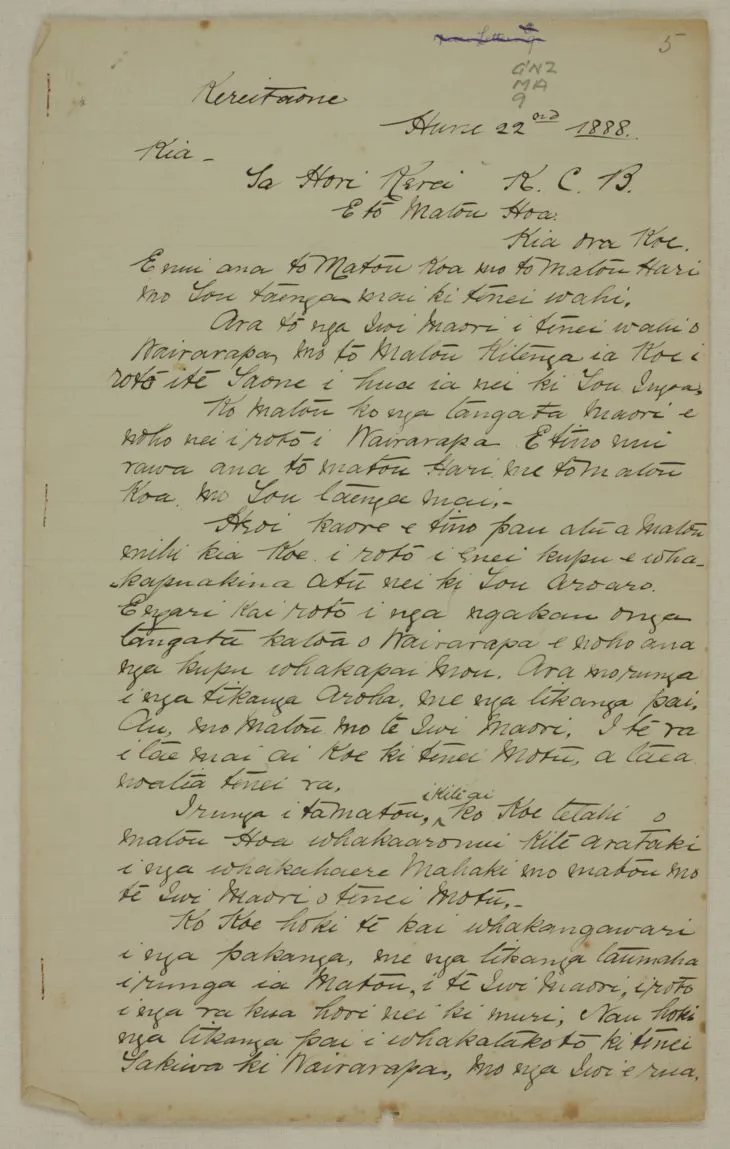 5
GNZ
MA
9
Kereitaone
Hune 22nd 1888.
Kia -
Ta Hori Kerei K. C. B.
E to Matou Hoa.
Kia ora Koe.
E nui ana to Matou Koa mo to Matou Hari
mo Tou taenga mai ki tenei wahi.
Ara to nga Iwi Maori i tenei wahi o
Wairarapa, mo to Matou Kitenga ia Koe i
roto i te Taone i hua ia nei ki Tou Ingoa,
Ko Matou ko nga tangata Maori e
noho nei i roto i Wairarapa E tino nui
rawa ana to matou Hari me to matou
Koa mo Tou taenga mai,-
Heoi kaore e tino pau atu a Matou
mihi kia Koe i roto i Enei kupu e wha-
-kapuakina atu nei ki Tou Aroaro.
Engari Kai roto i nga ngakau o nga
tangata katoa o Wairarapa e noho ana
nga kupu whakapai Mou. Ara mo runga
i nga tikanga Aroha, me nga tikanga pai,
Au, mo Matou mo te Iwi Maori, I te ra
i tae mai ai Koe ki tenei Motu, a taea
noatia tenei ra.
I runga i ta matou, i Kite ai ko Koe tetahi o
matou Hoa whakaaro nui Ki te Arataki
i nga whakahaere Mahaki mo matou mo
te Iwi Maori o tenei Motu,-
Ko Koe hoki te kai whakangawari
i nga pakanga, me nga tikanga taumaha
i runga ia Matou, i te Iwi Maori, i roto
i nga ra kua hori nei ki muri, Nau hoki
nga tikanga pai i whakatakoto ki tenei
Takiwa ki Wairarapa, mo nga Iwi e rua,